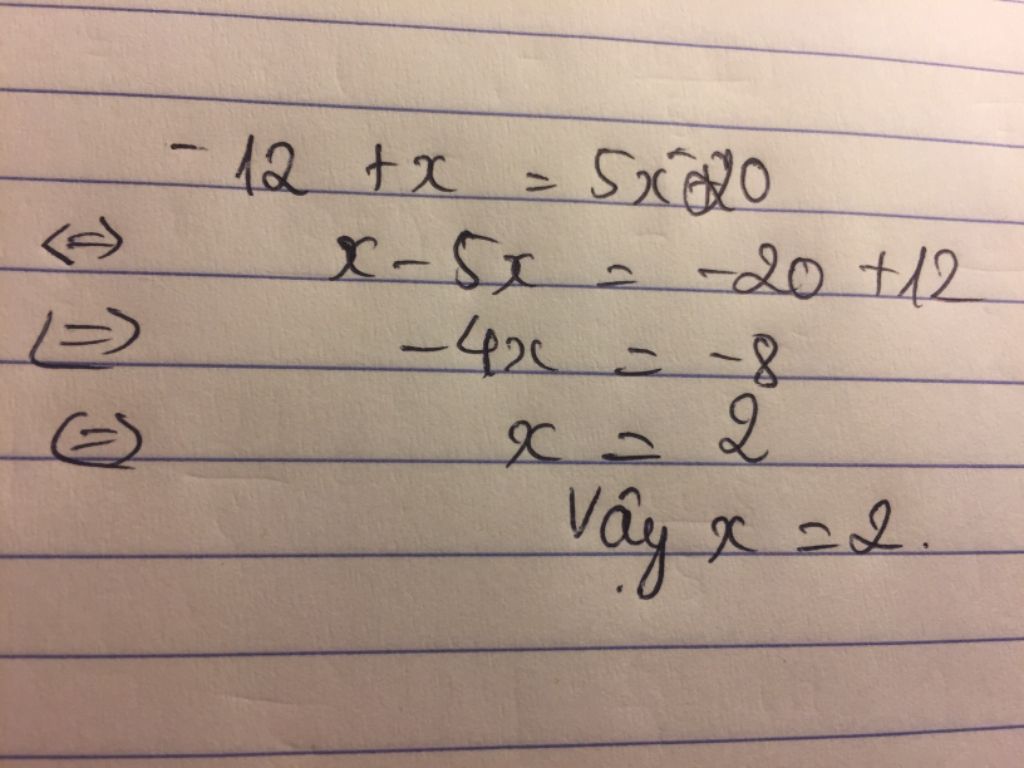 -12 + x = 5x - 20
<=> x - 5x = -20 + 12
<=> -4x = -8
<=> x = 2
Vậy x = 2.